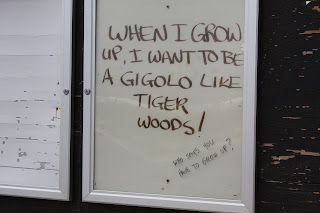 WHEN I GROW
UP, I WANT TO BE
A GIGOLO LIKE
TIGER
WOODS!
WHO SAYS YOU
HAVE TO GROW UP?